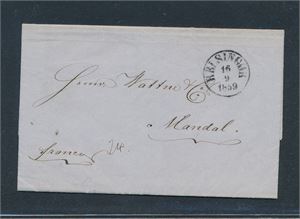 HELSINGØR
16
9
1859
Herrer Wattne & Co
Mandal.
franco